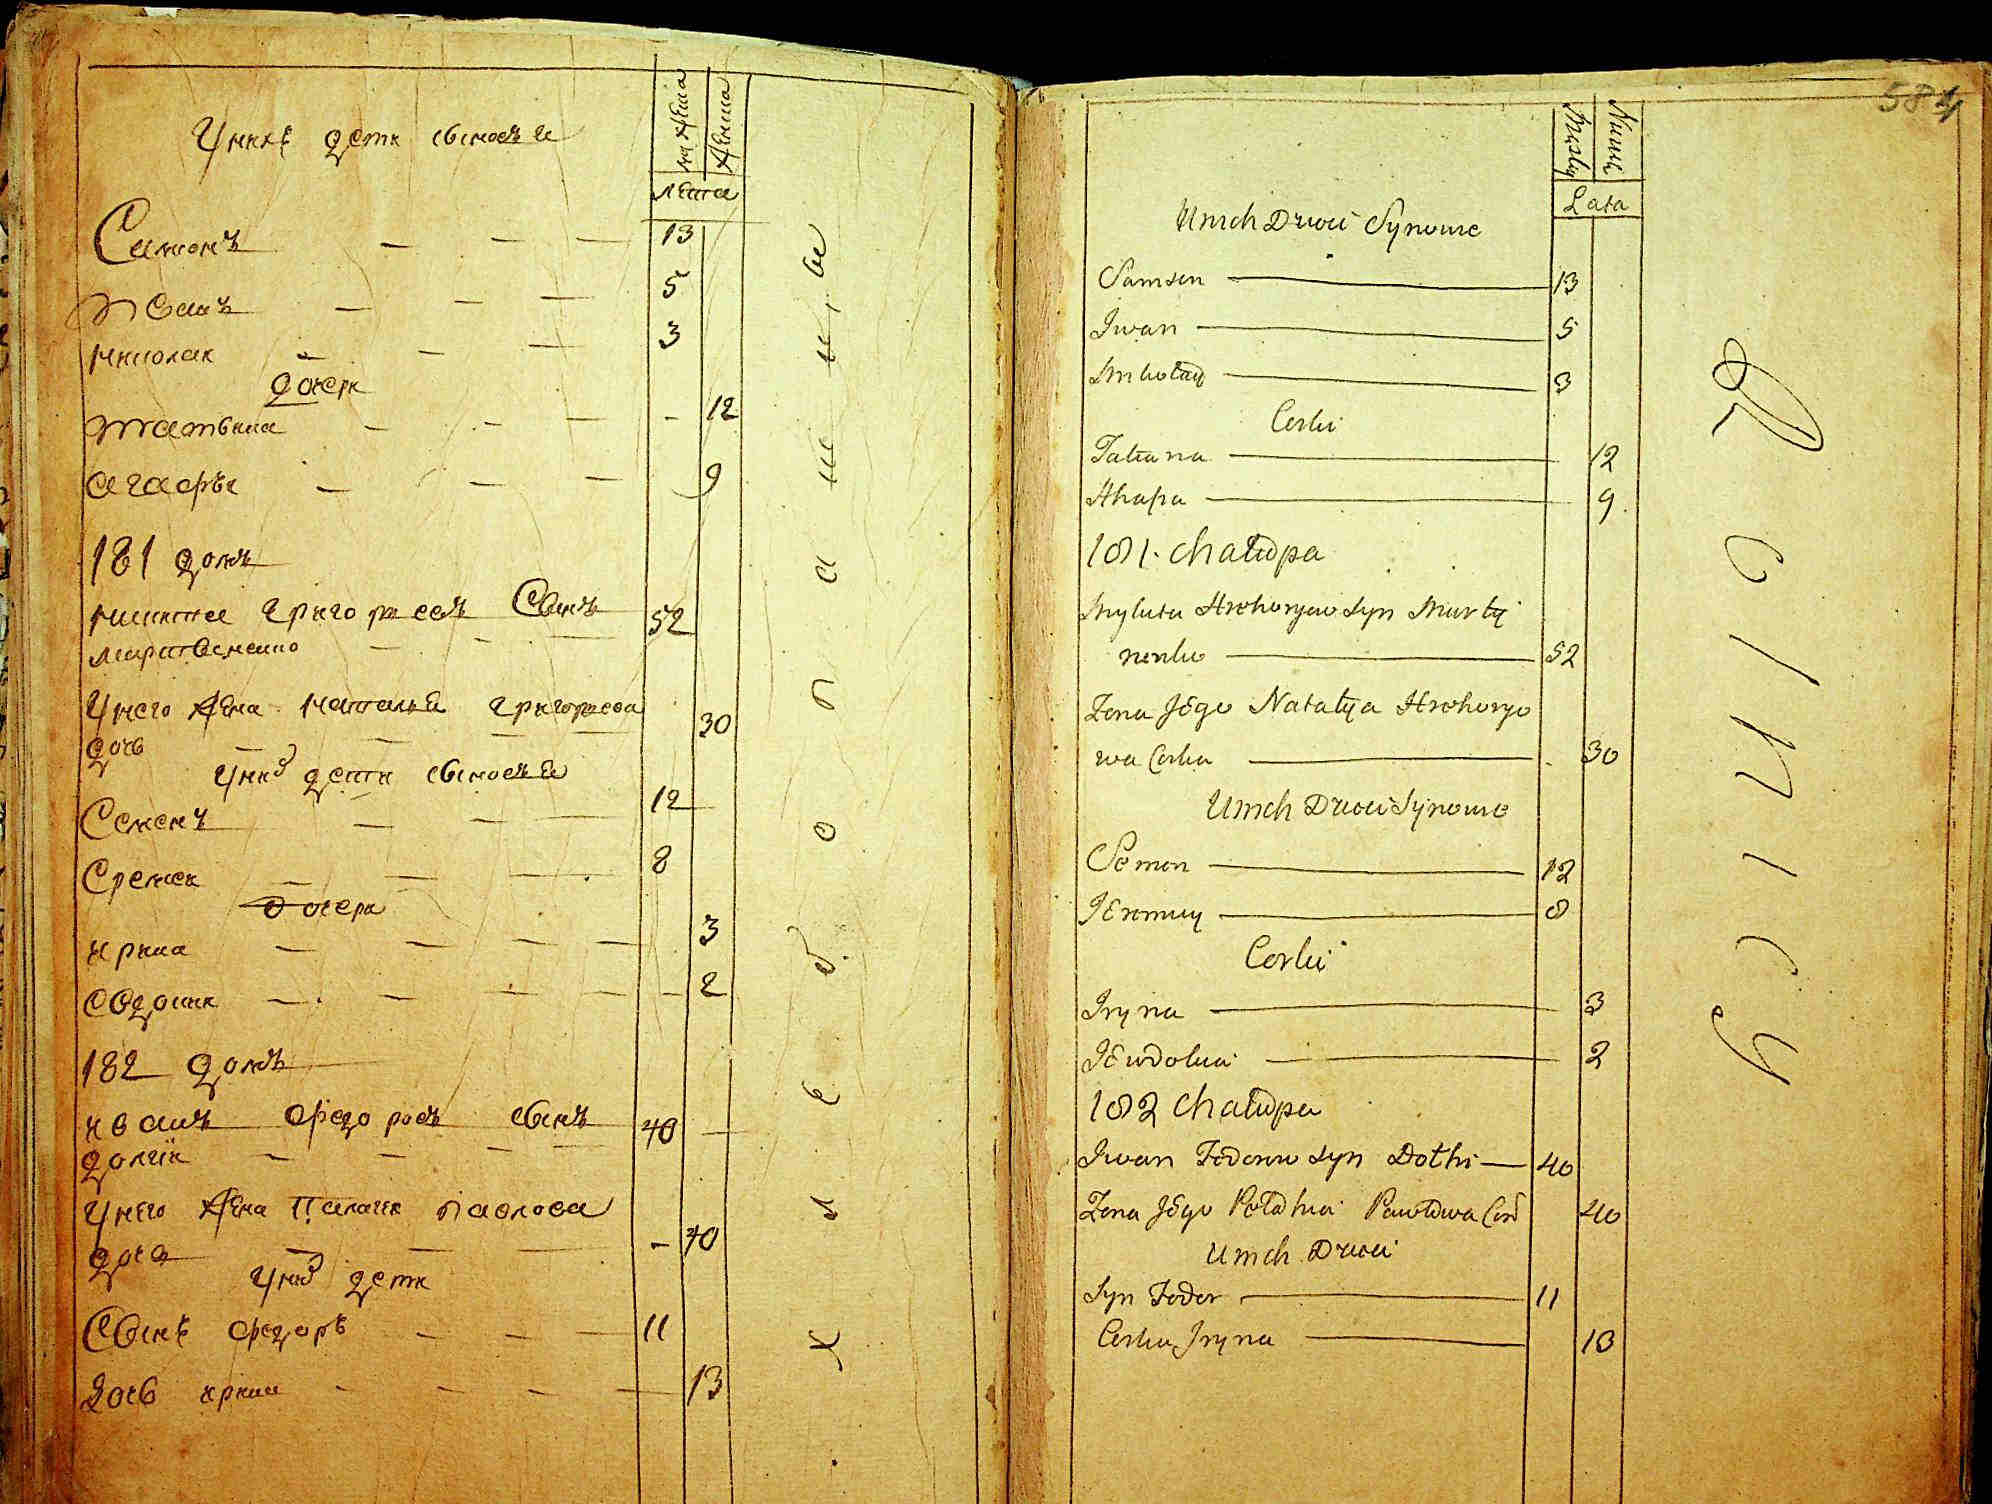 мужеска
женска
лѣта
У нихъ дети сыновья
Самсонъ — — — 13
Иванъ — — — 5
Николаи — — — 3
дочери
Татьяна — — — - 12
Агафья — — — 9
181 домъ
Никита Григорьевъ Сынъ 52
Мартыненко — — —
У него жена Наталья Григорьева 30
дочь — — — —
У них дети сыновья
Семенъ — — — 12
Еремеи — — — 8
дочери
Ирина — — — — 3
Евдокия — — — — - 2
182 домъ
Иванъ Федоровъ сынъ 40
Долгiи — — — —
У него жена Палагия Павлова
дочь — — — - 40
У них дети
Сынъ Федоръ — — — 11
Дочь Ирина — — — — 13
хлебопашцы
584
Męzkie
Lata
U nich Dzieci Synowie
Samson — 13
Iwan — 5
Mikołay — 3
Corki
Tatiana — 12
Ahafia — 9
181. Chałupa
Mykita Hrehorjew Syn Marty
nenko — 52
Zona Jego Natalya Hrehorjo
wa Corka — 30
U nich Dzieci Synowie
Semen — 12
Jeremiy — 8
Corki
Iryna — 3
Jewdokia — 2
182 Chałupa
Iwan Fedorow Syn Dołhi — 40
Zona Jego Połahia Pawłowa Cor 40
U nich Dzieci
Syn Fedor — 11
Corka Iryna — 13
Rolnicy